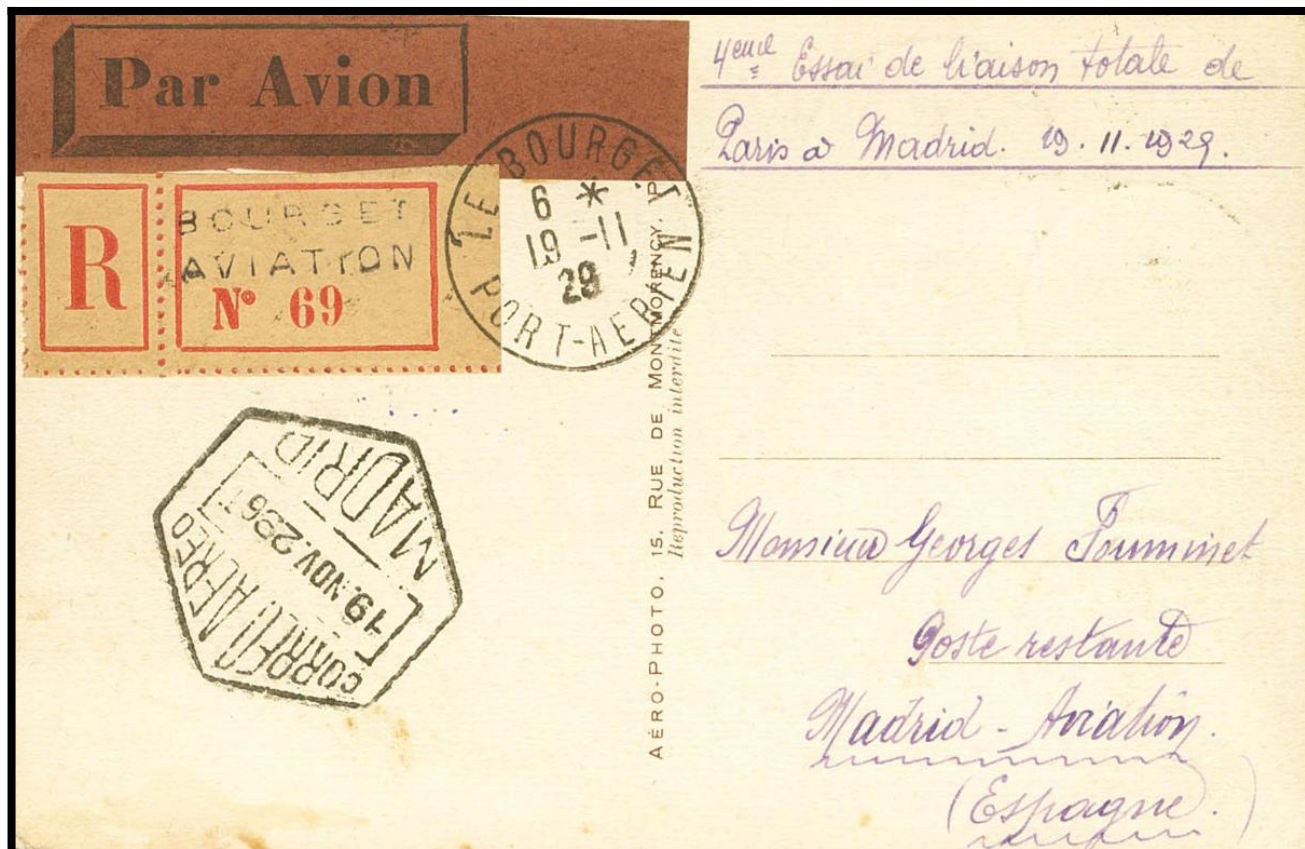 Par Avion
R
BOURGET
AVIATION
N° 69
LE BOURGET
6 *
19 -11
29
PORT-AERIEN
4eme Essai de liaison totale de
Paris à Madrid. 19.11.1929.
CORREO AEREO
19.NOV.29
MADRID
AÉRO-PHOTO, 15, RUE DE MONTMORENCY, P
Reproduction interdite
Monsieur Georges
Poste restante
Madrid - Aviation.
(Espagne.)